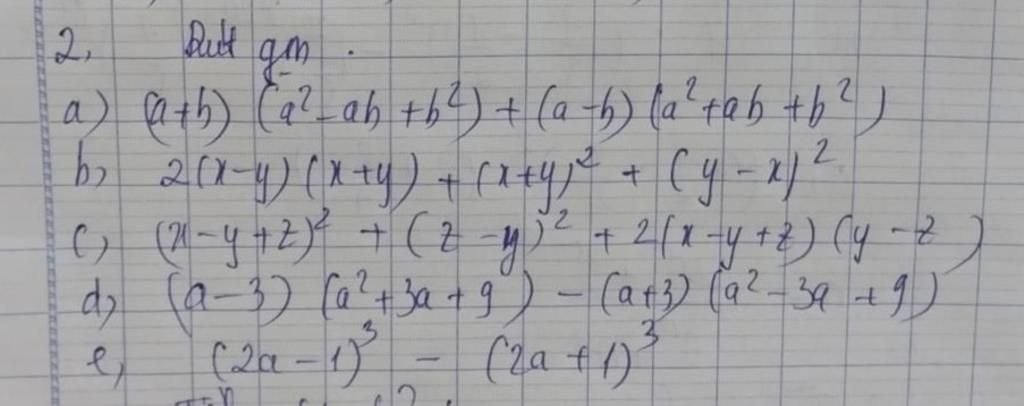 2, Rút gọn .
a) (a+b) (a² - ab + b²) + (a - b) (a² + ab + b²)
b, 2(x-y) (x+y) + (x+y)² + (y - x)²
c, (x - y + z)² + (z - y)² + 2(x - y + z) (y - z)
d, (a - 3) (a² + 3a + 9) - (a+3) (a² - 3a + 9)
e, (2a - 1)³ - (2a + 1)³